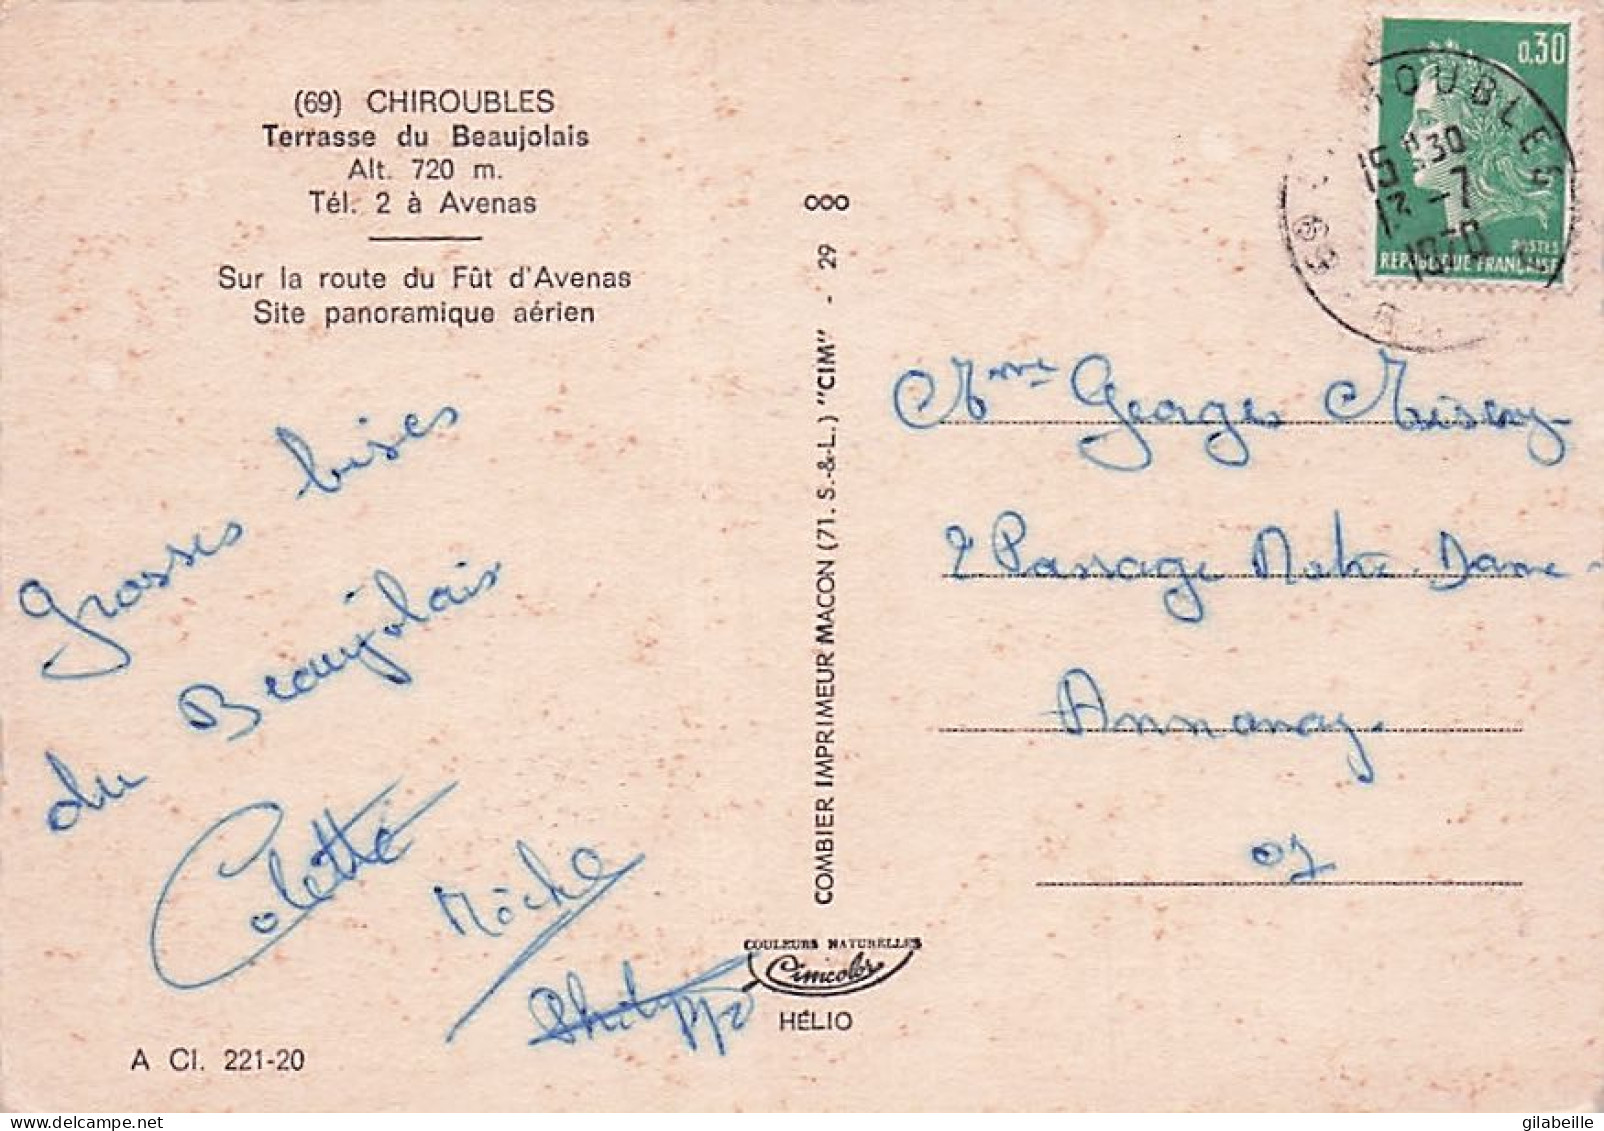 (69) CHIROUBLES
Terrasse du Beaujolais
Alt. 720 m.
Tél. 2 à Avenas
Sur la route du Fût d'Avenas
Site panoramique aérien
Grosses bises
du Beaujolais
Colette
Michel
Philippe
A Cl. 221-20
COMBIER IMPRIMEUR MACON (71. S.-&-L.) "CIM" - 29
COULEURS NATURELLES
Cimcolor
HÉLIO
0.30
POSTES
REPUBLIQUE FRANÇAISE
ROUBLES
15 H30
13 -7
1970
69
Mme Georges
2 Passage Notre-Dame-
Annonay.
07
delcampe.net
gilabeille